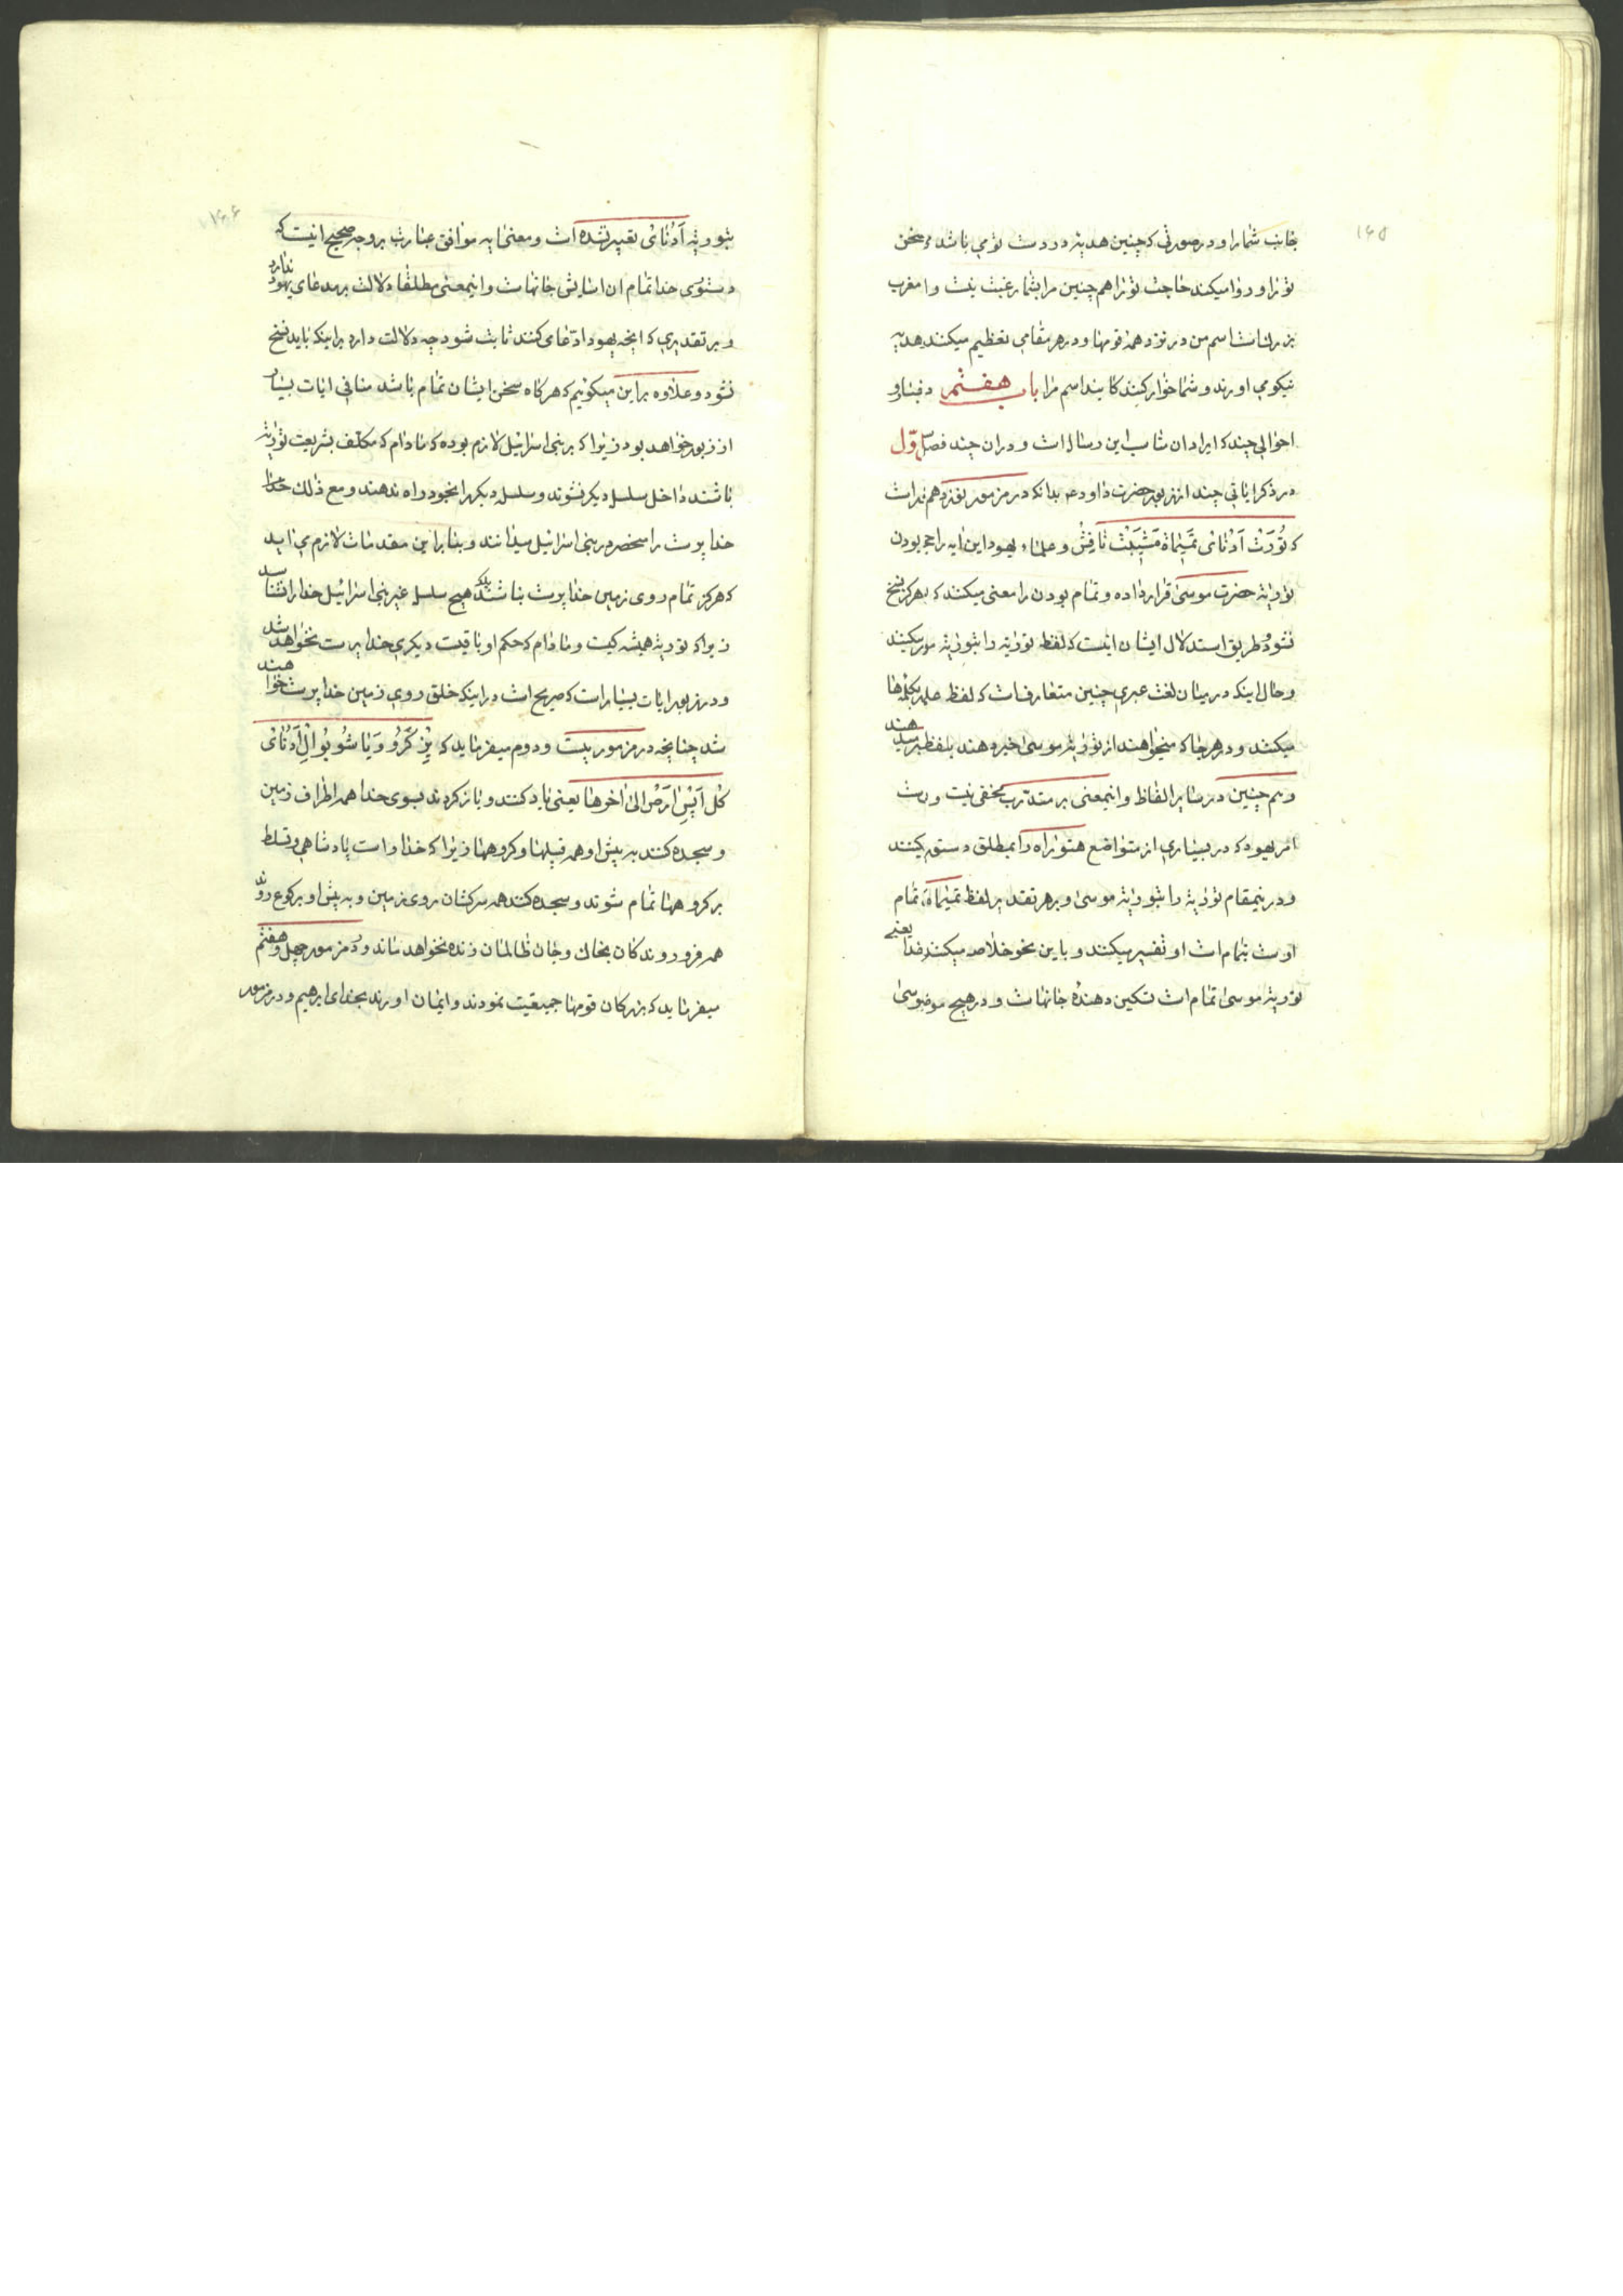 ۱۶۵
جانب شما را و در صورتی که چنین هدیه در دست تو می باشد و سخن
تو را و روا میکند حاجت تو را هم چنین مرا بشما رغبت نیست و از مغرب
بزرك است اسم من در نزد همه قومها و در هر مقامی تعظیم میکنند هدیه
نیکو می اورند و شما خوار کنندکانید اسم مرا باب هفتم در بیان
احوالی چند که ایراد ان مناسب این رساله است و در ان چند فصل اول
در ذکر ایاتی چند از زبور حضرت داود ع بدانکه در مزمور نوزدهم مذکور است
که تُورَتْ اَدُنٰای تَمیٰماٰه مَشیبَتْ نٰافِشْ و علماء یهود این ایه را حجه بودن
توریة حضرت موسی قرار داده و تمام بودن را معنی میکنند که بهرکز نسخ
نشود و طریق استدلال ایشان اینست که لفظ توریة را بتوریة موسی میکنند
و حال اینکه در میان لغت عبری چنین متعارف است که لفظ علم بکلمه ها
میکنند و در هر جا که میخواهند از توریة موسی خبر دهند بلفظ میرسانند
و هم چنین در سایر الفاظ و اینمعنی بر متدرب مخفی نیست
امر یهود که در بسیاری از مواضع هتوراه را بمطلق دستور میکنند
و در اینمقام توریة را بتوریة موسی و بر هر تقدیر لفظ تمیماه تمام
اوست بتمام است او تفسیر میکنند و باین نحو خلاصه میکنند یعنی
توریة موسی تمام است تسکین دهنده جانهاست و در هیچ موضوعی
۱۶۶
بتوریة اَدُنٰای تعبیر نشده است و معنی ایه موافق عبارت بر وجه صحیح اینست که
دستوری خدا تمام ان اسایش جانهاست و اینمعنی مطلقا دلالت بر مدعای یهود ندارد
و بر تقدیری که انچه یهود ادعا می کنند ثابت شود چه دلالت دارد بر اینکه باید نسخ
نشود و علاوه بر این میکوئیم که هر کاه سخن ایشان تمام باشد منافی ایات بسیار
از زبور خواهد بود زیرا که بر بنی اسرائیل لازم بوده که مادام که مکلف بشریعت توریة
باشند داخل سلسله دیکر نشوند و سلسله دیکر را بخود راه ندهند و مع ذلك
خدا پرست را منحصر در بنی اسرائیل میدانند و بنابر این مقدمات لازم می اید
که هرکز تمام روی زمین خدا پرست نباشند بلکه هیچ سلسله غیر بنی اسرائیل خدا را نشناسد
زیرا که توریة همیشه کیست و مادام که حکم او باقیست دیکری خدا پرست نخواهد شد
و در زبور ایات بسیار است که صریح است در اینکه خلق روی زمین خدا پرست خواهند
شد چنانچه در مزمور بیست و دوم میفرماید که یِزکَرُّو وَیٰاشُوبُو اِلْ اَدُنٰای
کُل اَپْسِ اٰرَصْ الی اخرها یعنی یاد کنند و باز کردند بسوی خدا همه اطراف زمین
و سجده کنند به پیش او همه قبیلها و کروهها زیرا که خدا راست پادشاهی و تسلط
بر کروهها تمام شوند و سجده کنند همه سرکشان روی زمین و به پیش او برکوع روند
همه فرو روندکان بخاك و جان ظالمان زنده نخواهد ماند و در مزمور چهل و هفتم
میفرماید که بزرکان قومها جمیعت نمودند و ایمان اورند بخدای ابرهیم و در مزمور